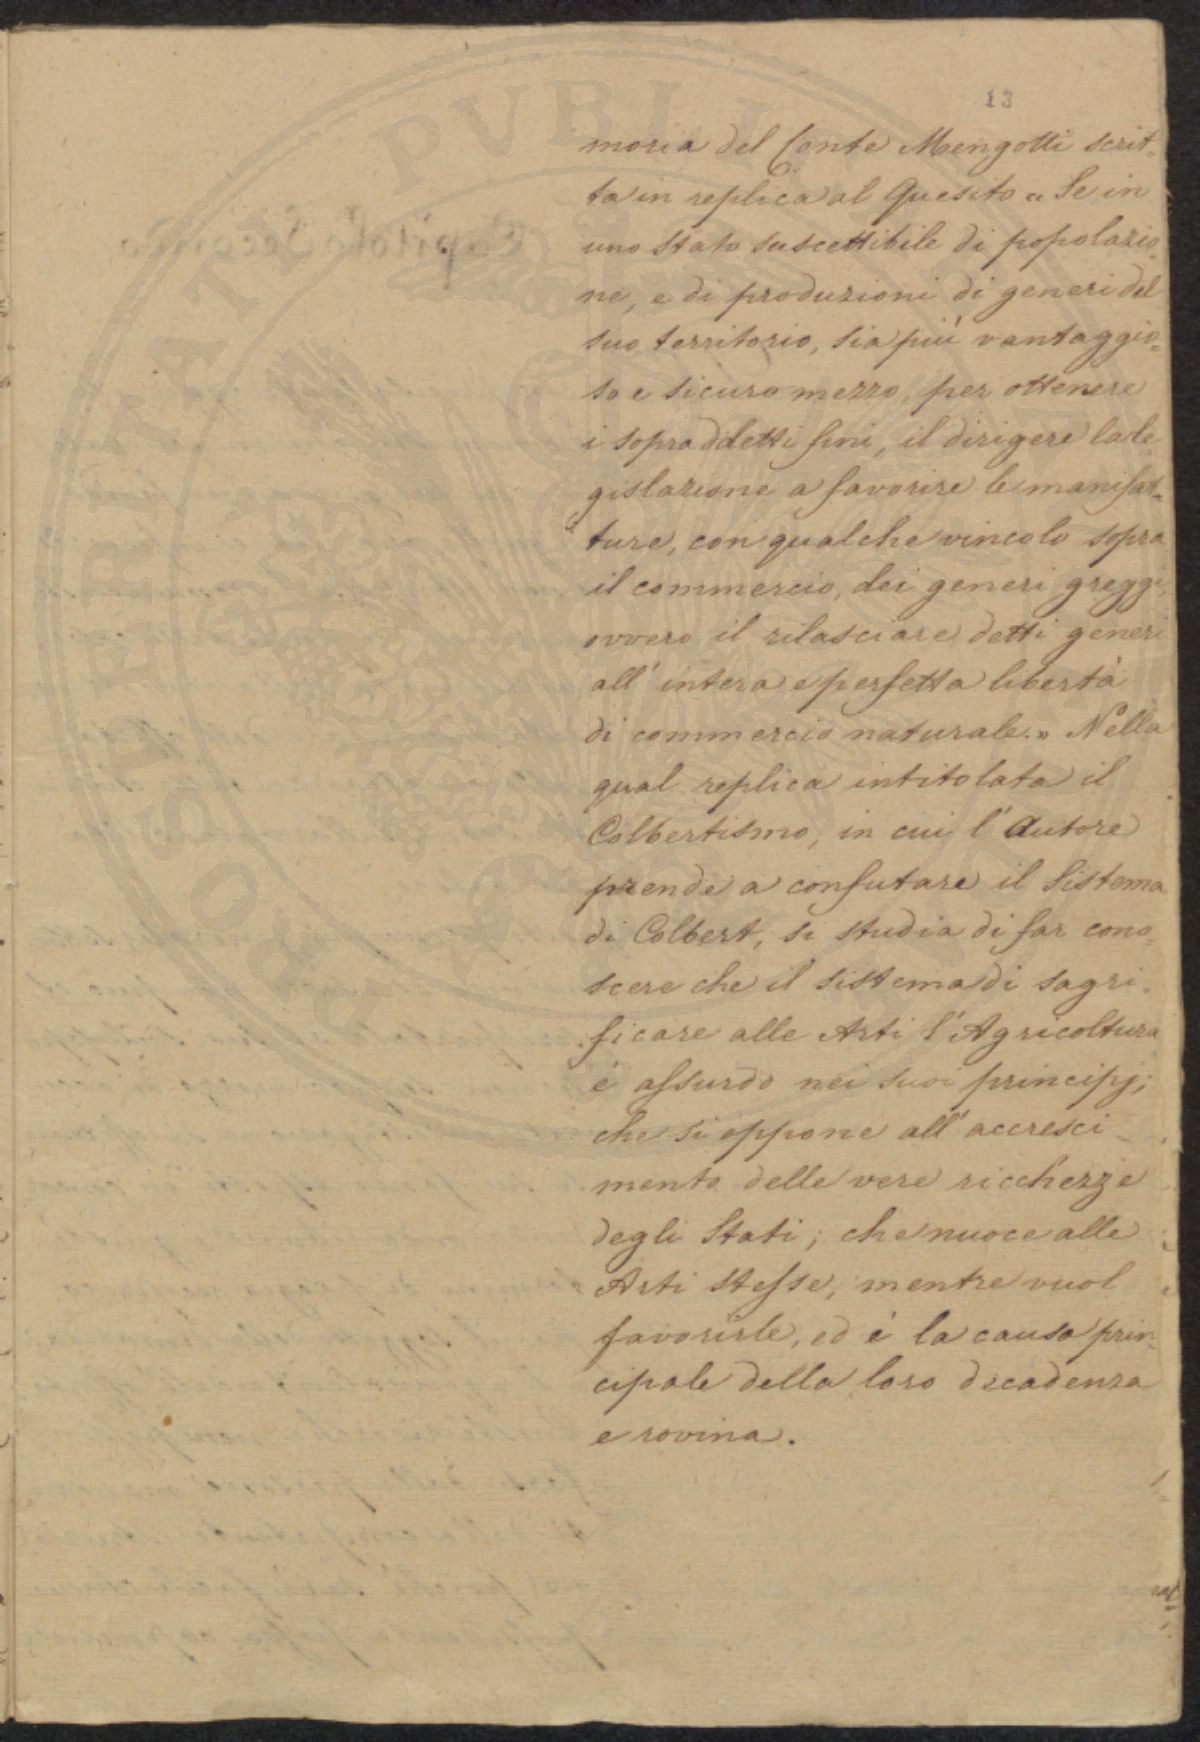 13
moria del Conte Mengotti scrit-
ta in replica al Quesito „ Se in
uno stato suscettibile di popolazio-
ne, e di produzioni di generi del
suo territorio, sia più vantaggio-
so e sicuro mezzo, per ottenere
i sopraddetti fini, il dirigere la le-
gislazione a favorire le manifat-
ture, con qualche vincolo sopra
il commercio, dei generi greggi,
ovvero il rilasciare detti generi
all' intera e perfetta libertà
di commercio naturale. „ Nella
qual replica intitolata il
Colbertismo, in cui l' Autore
prende a confutare il Sistema
di Colbert, si studia di far cono-
scere che il sistema di sagri-
ficare alle Arti l' Agricoltura
è assurdo nei suoi principj;
che si oppone all' accresci-
mento delle vere ricchezze
degli Stati; che nuoce alle
Arti stesse, mentre vuol
favorirle, ed è la causa prin-
cipale della loro decadenza
e rovina.